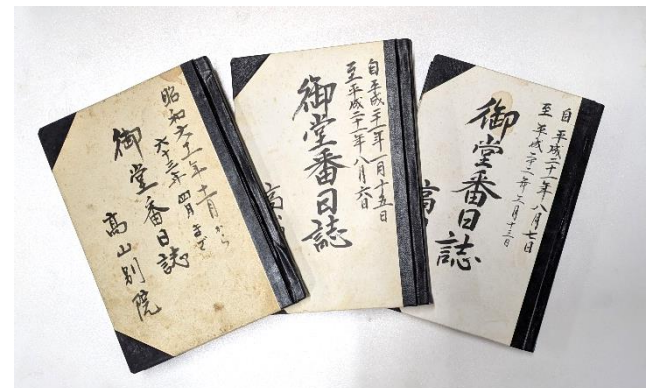 昭和六十一年 十一月 から
六十三年 四月 まで
御堂番日誌
高山別院
自 平成二十一年一月十五日
至 平成二十一年八月六日
御堂番日誌
高
自 平成二十一年八月七日
至 平成二十二年三月十三日
御堂番日誌
高